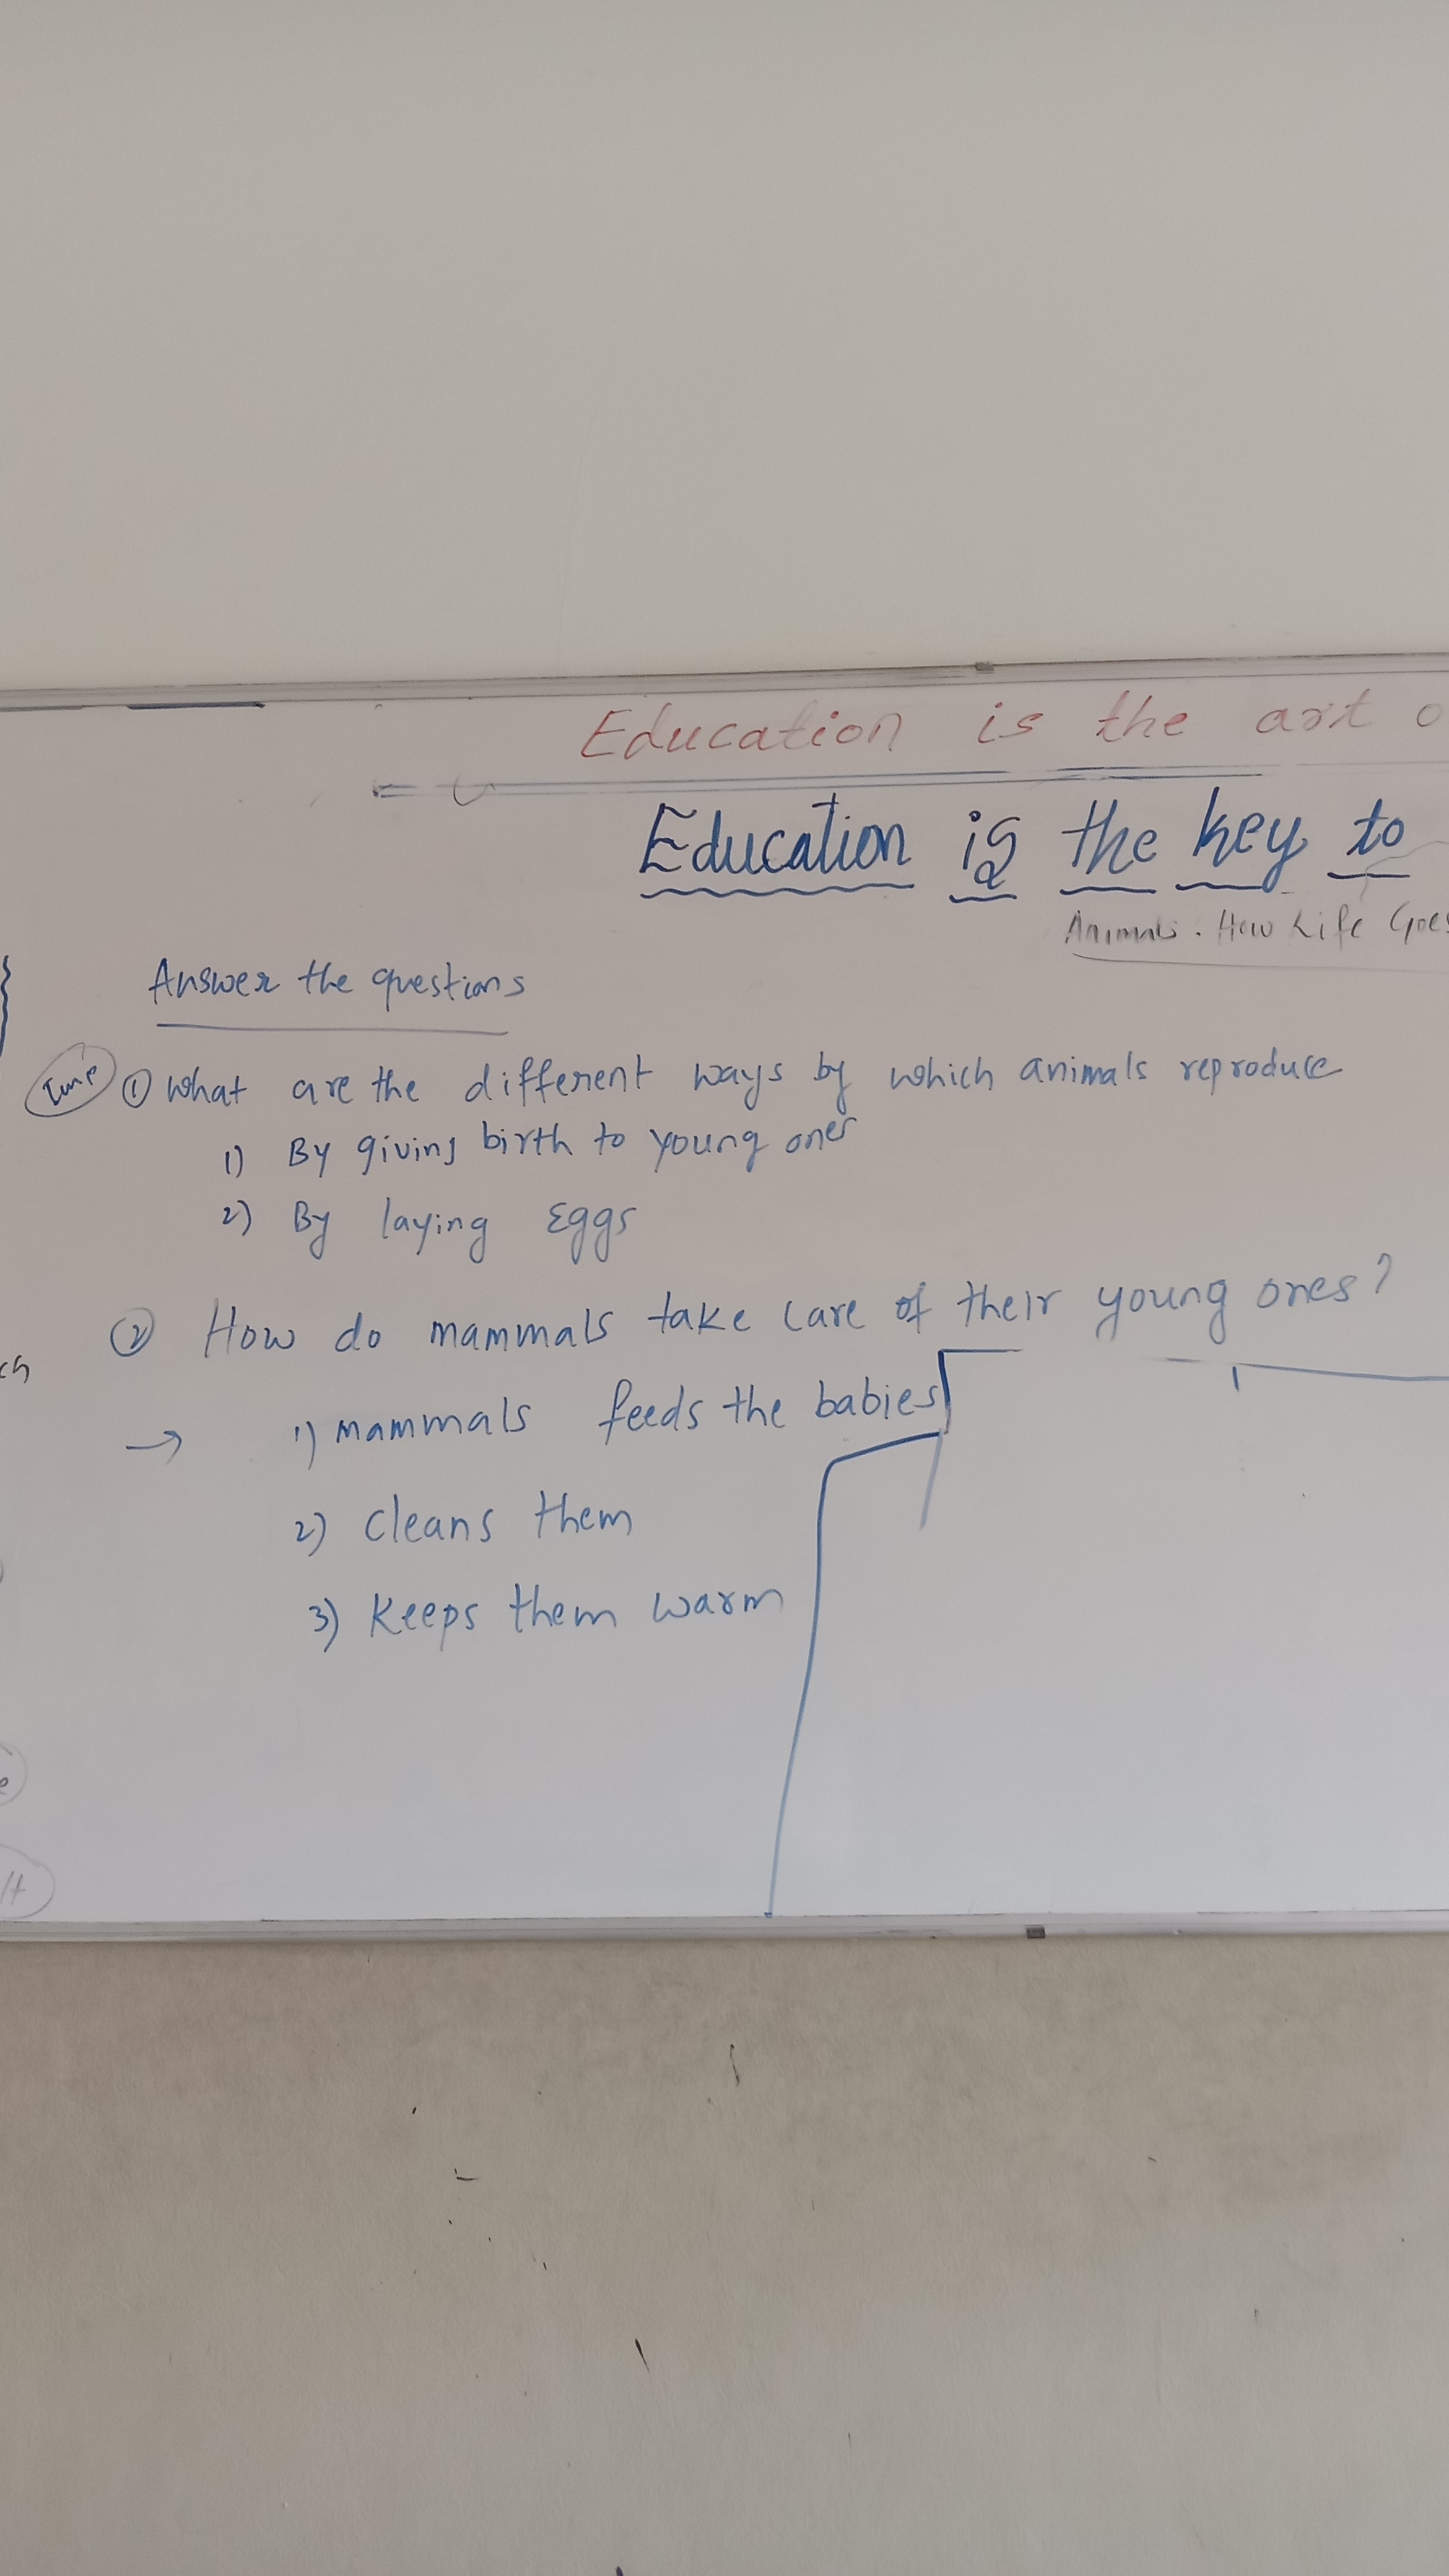 Education is the art o
Education is the key to
Animals : How Life Goes
Answer the questions
Imp ① What are the different ways by which animals reproduce
1) By giving birth to young ones
2) By laying Eggs
② How do mammals take care of their young ones?
→ 1) mammals feeds the babies
2) cleans them
3) Keeps them warm